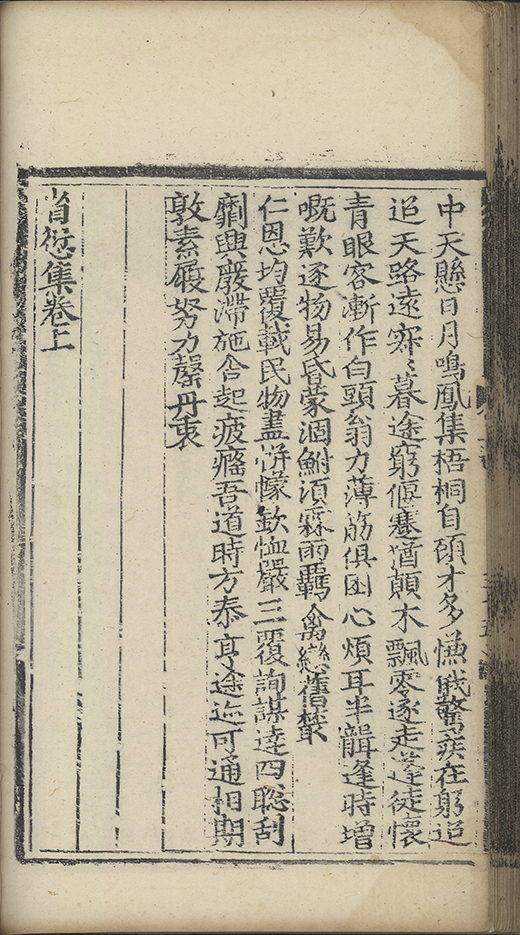 中天懸日月鳴鳳集梧桐自顧才多慊俄驚疾在躬迢
迢天路遠寂〻暮途窮偃蹇猶顛木飄零逐走蓬徒懷
青眼客漸作白頭翁力薄筋俱困心煩耳半聾逢時增
嘅歎逐物易昏蒙涸鮒須霖雨羈禽戀舊叢
仁恩均覆載民物盡帡幪欽恤嚴三覆詢謀達四聰刮
劘興廢滯施舍起疲癃吾道時方泰亨途迹可通相期
敦素履努力罄丹衷
省愆集卷上